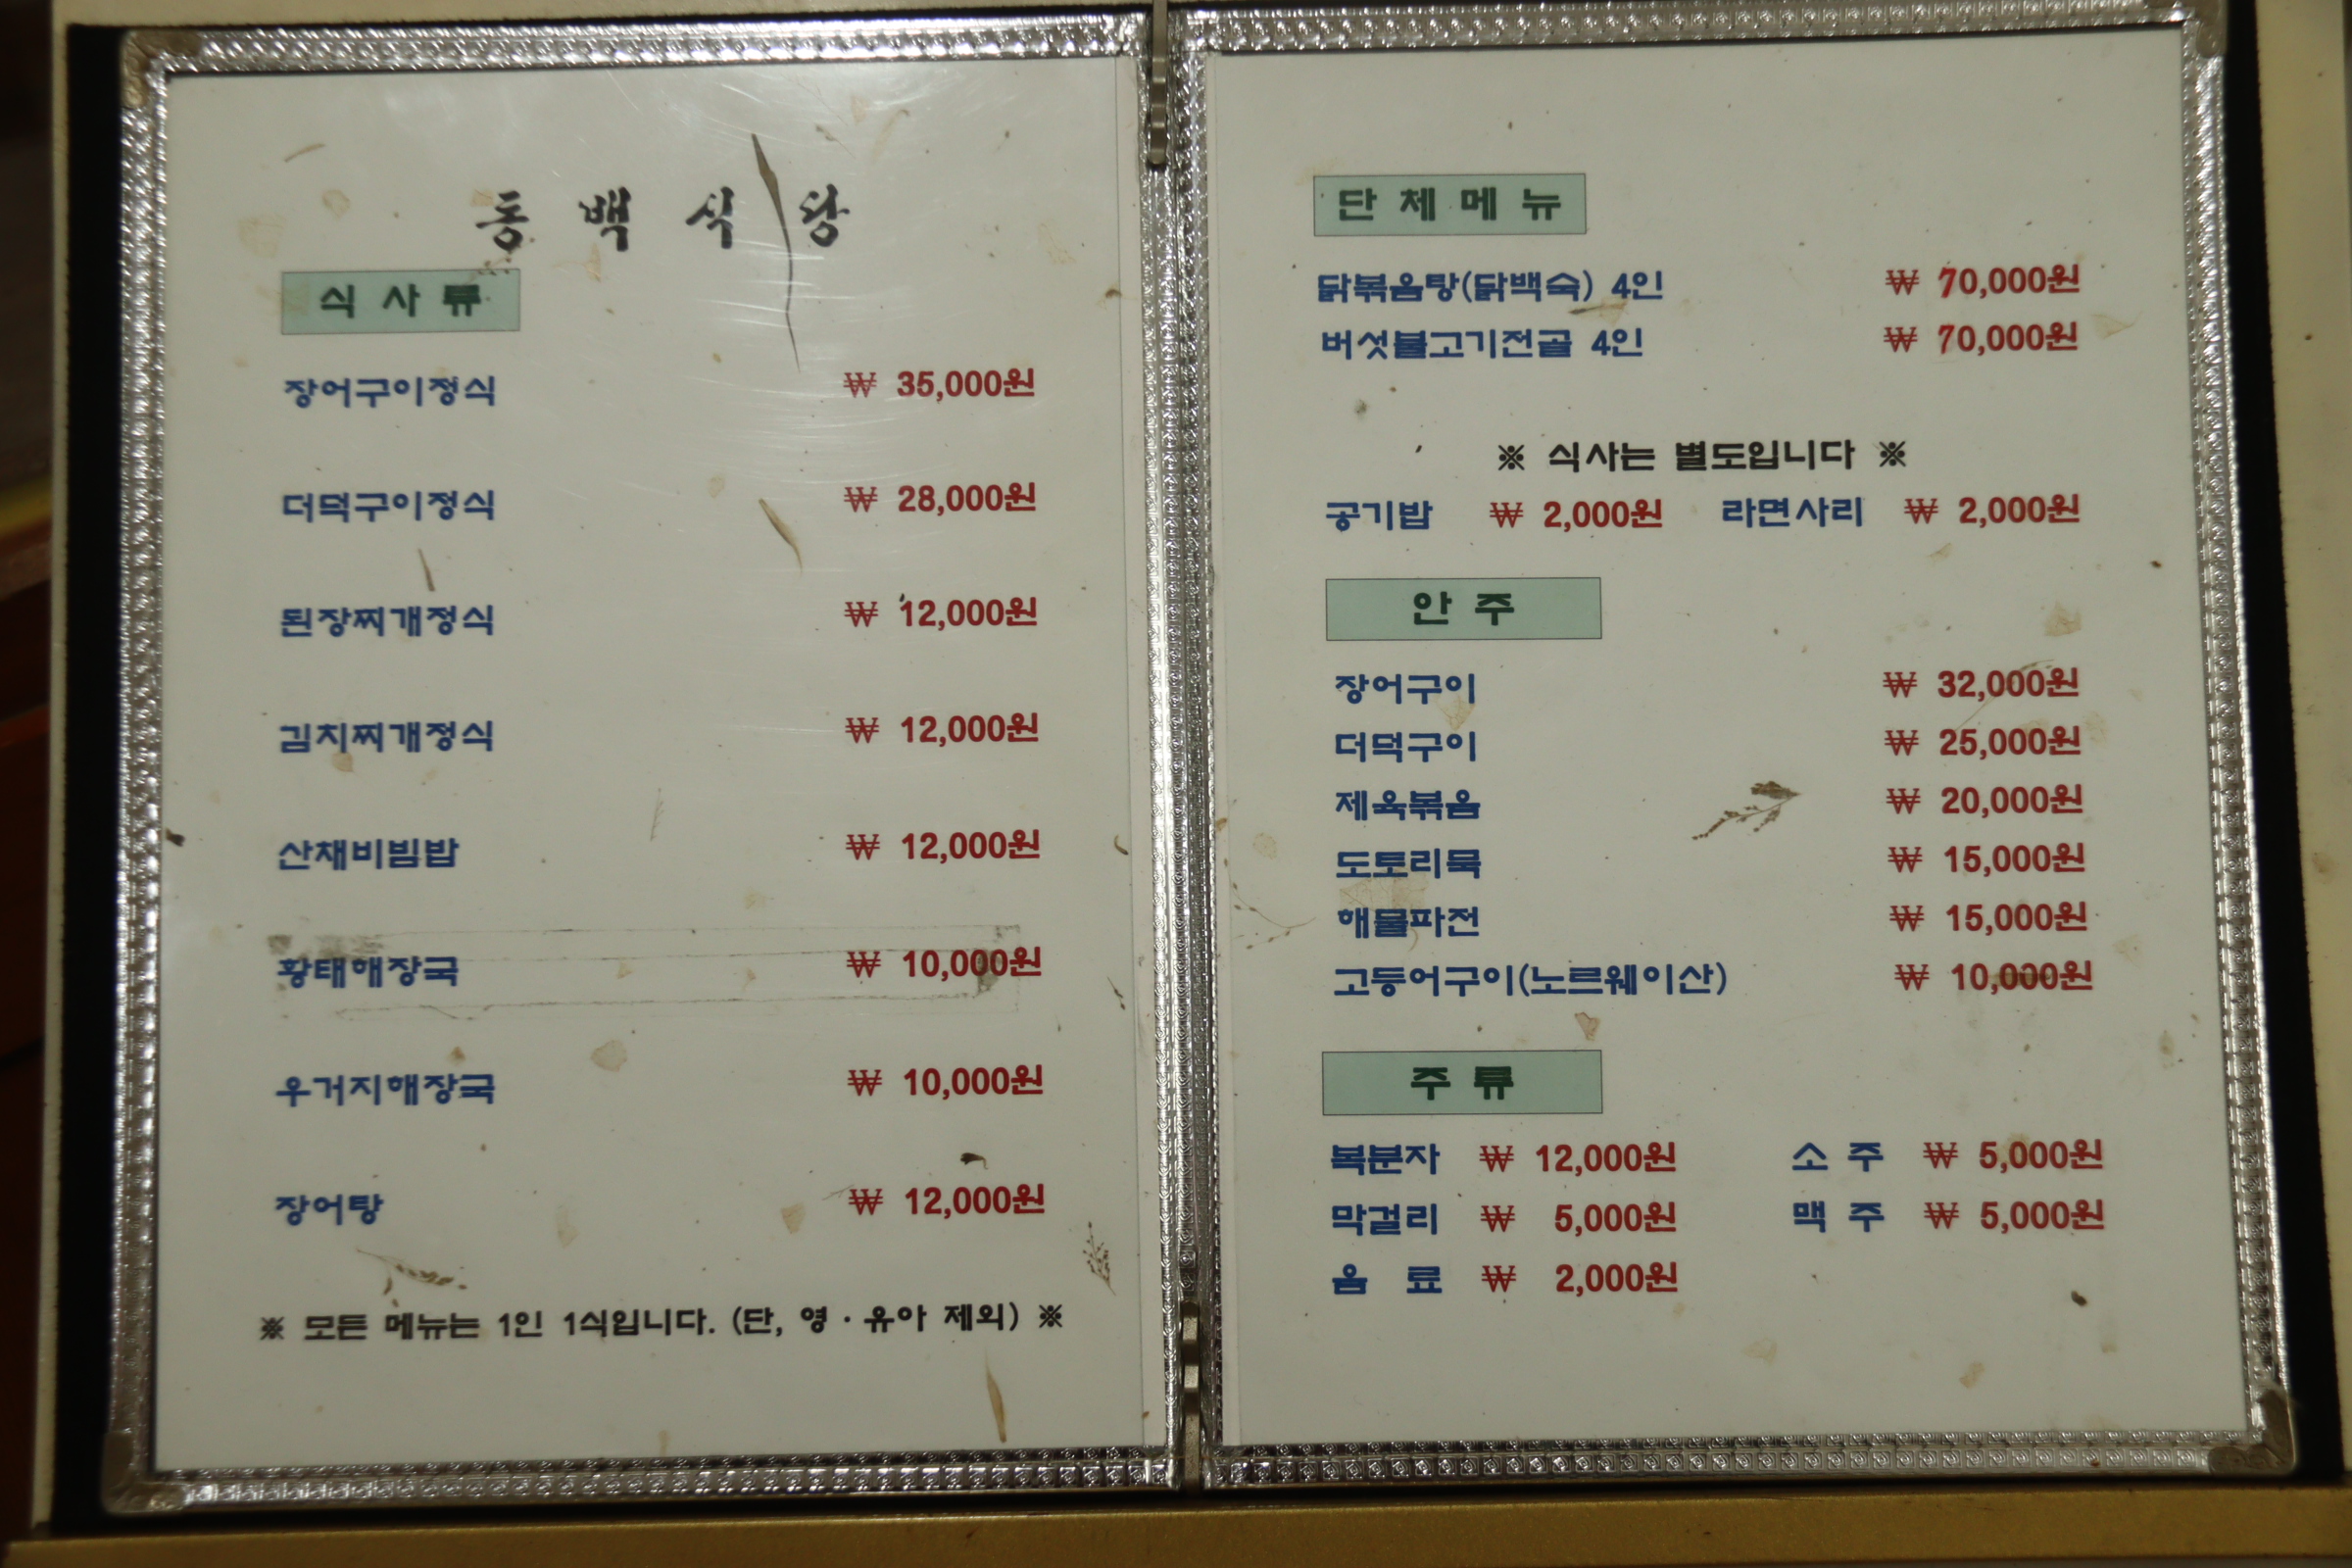 동 백 식 당
식 사 류
장어구이정식 ₩ 35,000원
더덕구이정식 ₩ 28,000원
된장찌개정식 ₩ 12,000원
김치찌개정식 ₩ 12,000원
산채비빔밥 ₩ 12,000원
황태해장국 ₩ 10,000원
우거지해장국 ₩ 10,000원
장어탕 ₩ 12,000원
※ 모든 메뉴는 1인 1식입니다. (단, 영·유아 제외) ※
단 체 메 뉴
닭볶음탕(닭백숙) 4인 ₩ 70,000원
버섯불고기전골 4인 ₩ 70,000원
※ 식사는 별도입니다 ※
공기밥 ₩ 2,000원 라면사리 ₩ 2,000원
안 주
장어구이 ₩ 32,000원
더덕구이 ₩ 25,000원
제육볶음 ₩ 20,000원
도토리묵 ₩ 15,000원
해물파전 ₩ 15,000원
고등어구이(노르웨이산) ₩ 10,000원
주 류
복분자 ₩ 12,000원 소 주 ₩ 5,000원
막걸리 ₩ 5,000원 맥 주 ₩ 5,000원
음 료 ₩ 2,000원